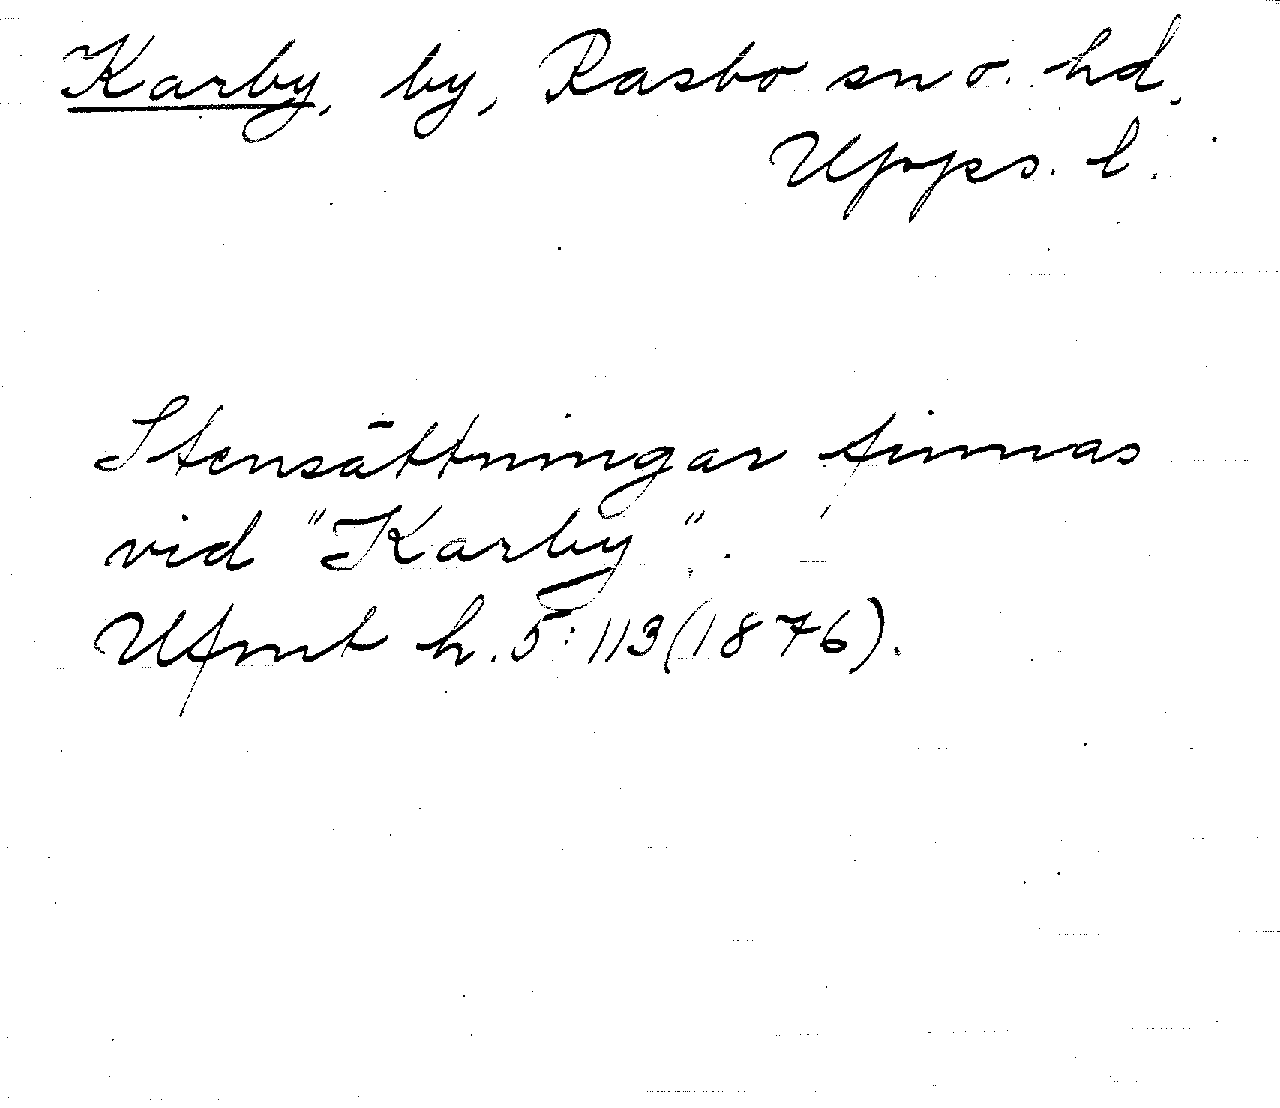 Karby, by, Rasbo sn o. hd,
Upps. l.
Stensättningar finnas
vid "Karby".
Ufmt h. 5:113(1876).